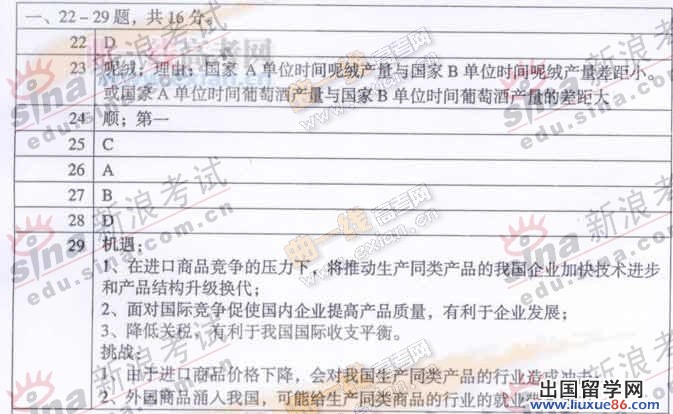 一、22－29题，共16分。
22 D
23 呢绒；理由：国家 A 单位时间呢绒产量与国家 B 单位时间呢绒产量差距小。
或国家 A 单位时间葡萄酒产量与国家 B 单位时间葡萄酒产量的差距大
24 顺；第一
25 C
26 A
27 B
28 D
29 机遇：
1、在进口商品竞争的压力下，将推动生产同类产品的我国企业加快技术进步
和产品结构升级换代；
2、面对国际竞争促使国内企业提高产品质量，有利于企业发展；
3、降低关税，有利于我国国际收支平衡。
挑战：
1、由于进口商品价格下降，会对我国生产同类产品的行业造成冲击
2、外国商品涌入我国，可能给生产同类商品的行业的就业
sina 新浪考试
edu.sina.com.cn
曲一线高考网
出国留学网
www.liuxue86.com